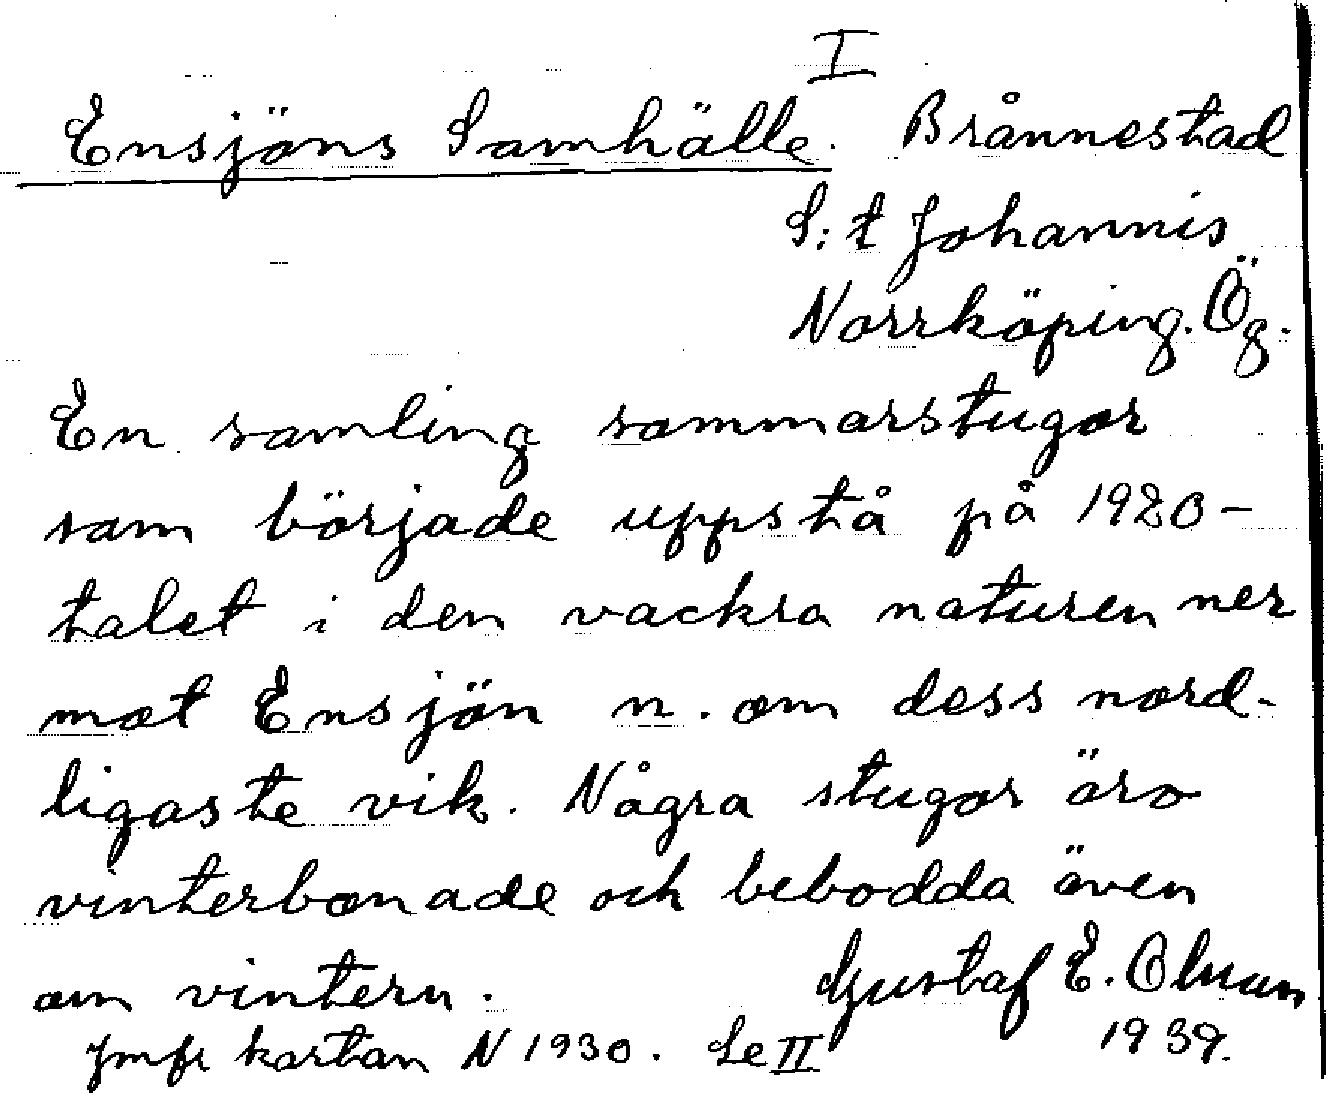 I
Ensjöns Samhälle. Brånnestad
S:t Johannis
Norrköping. Ög.
En samling sommarstugor
som började uppstå på 1920-
talet i den vackra naturen ner
mot Ensjön n. om dess nord-
ligaste vik. Några stugor äro
vinterbonade och bebodda även
om vintern. Gustaf E. Olman
Jmfr kartan N 1930. Se II 1939.